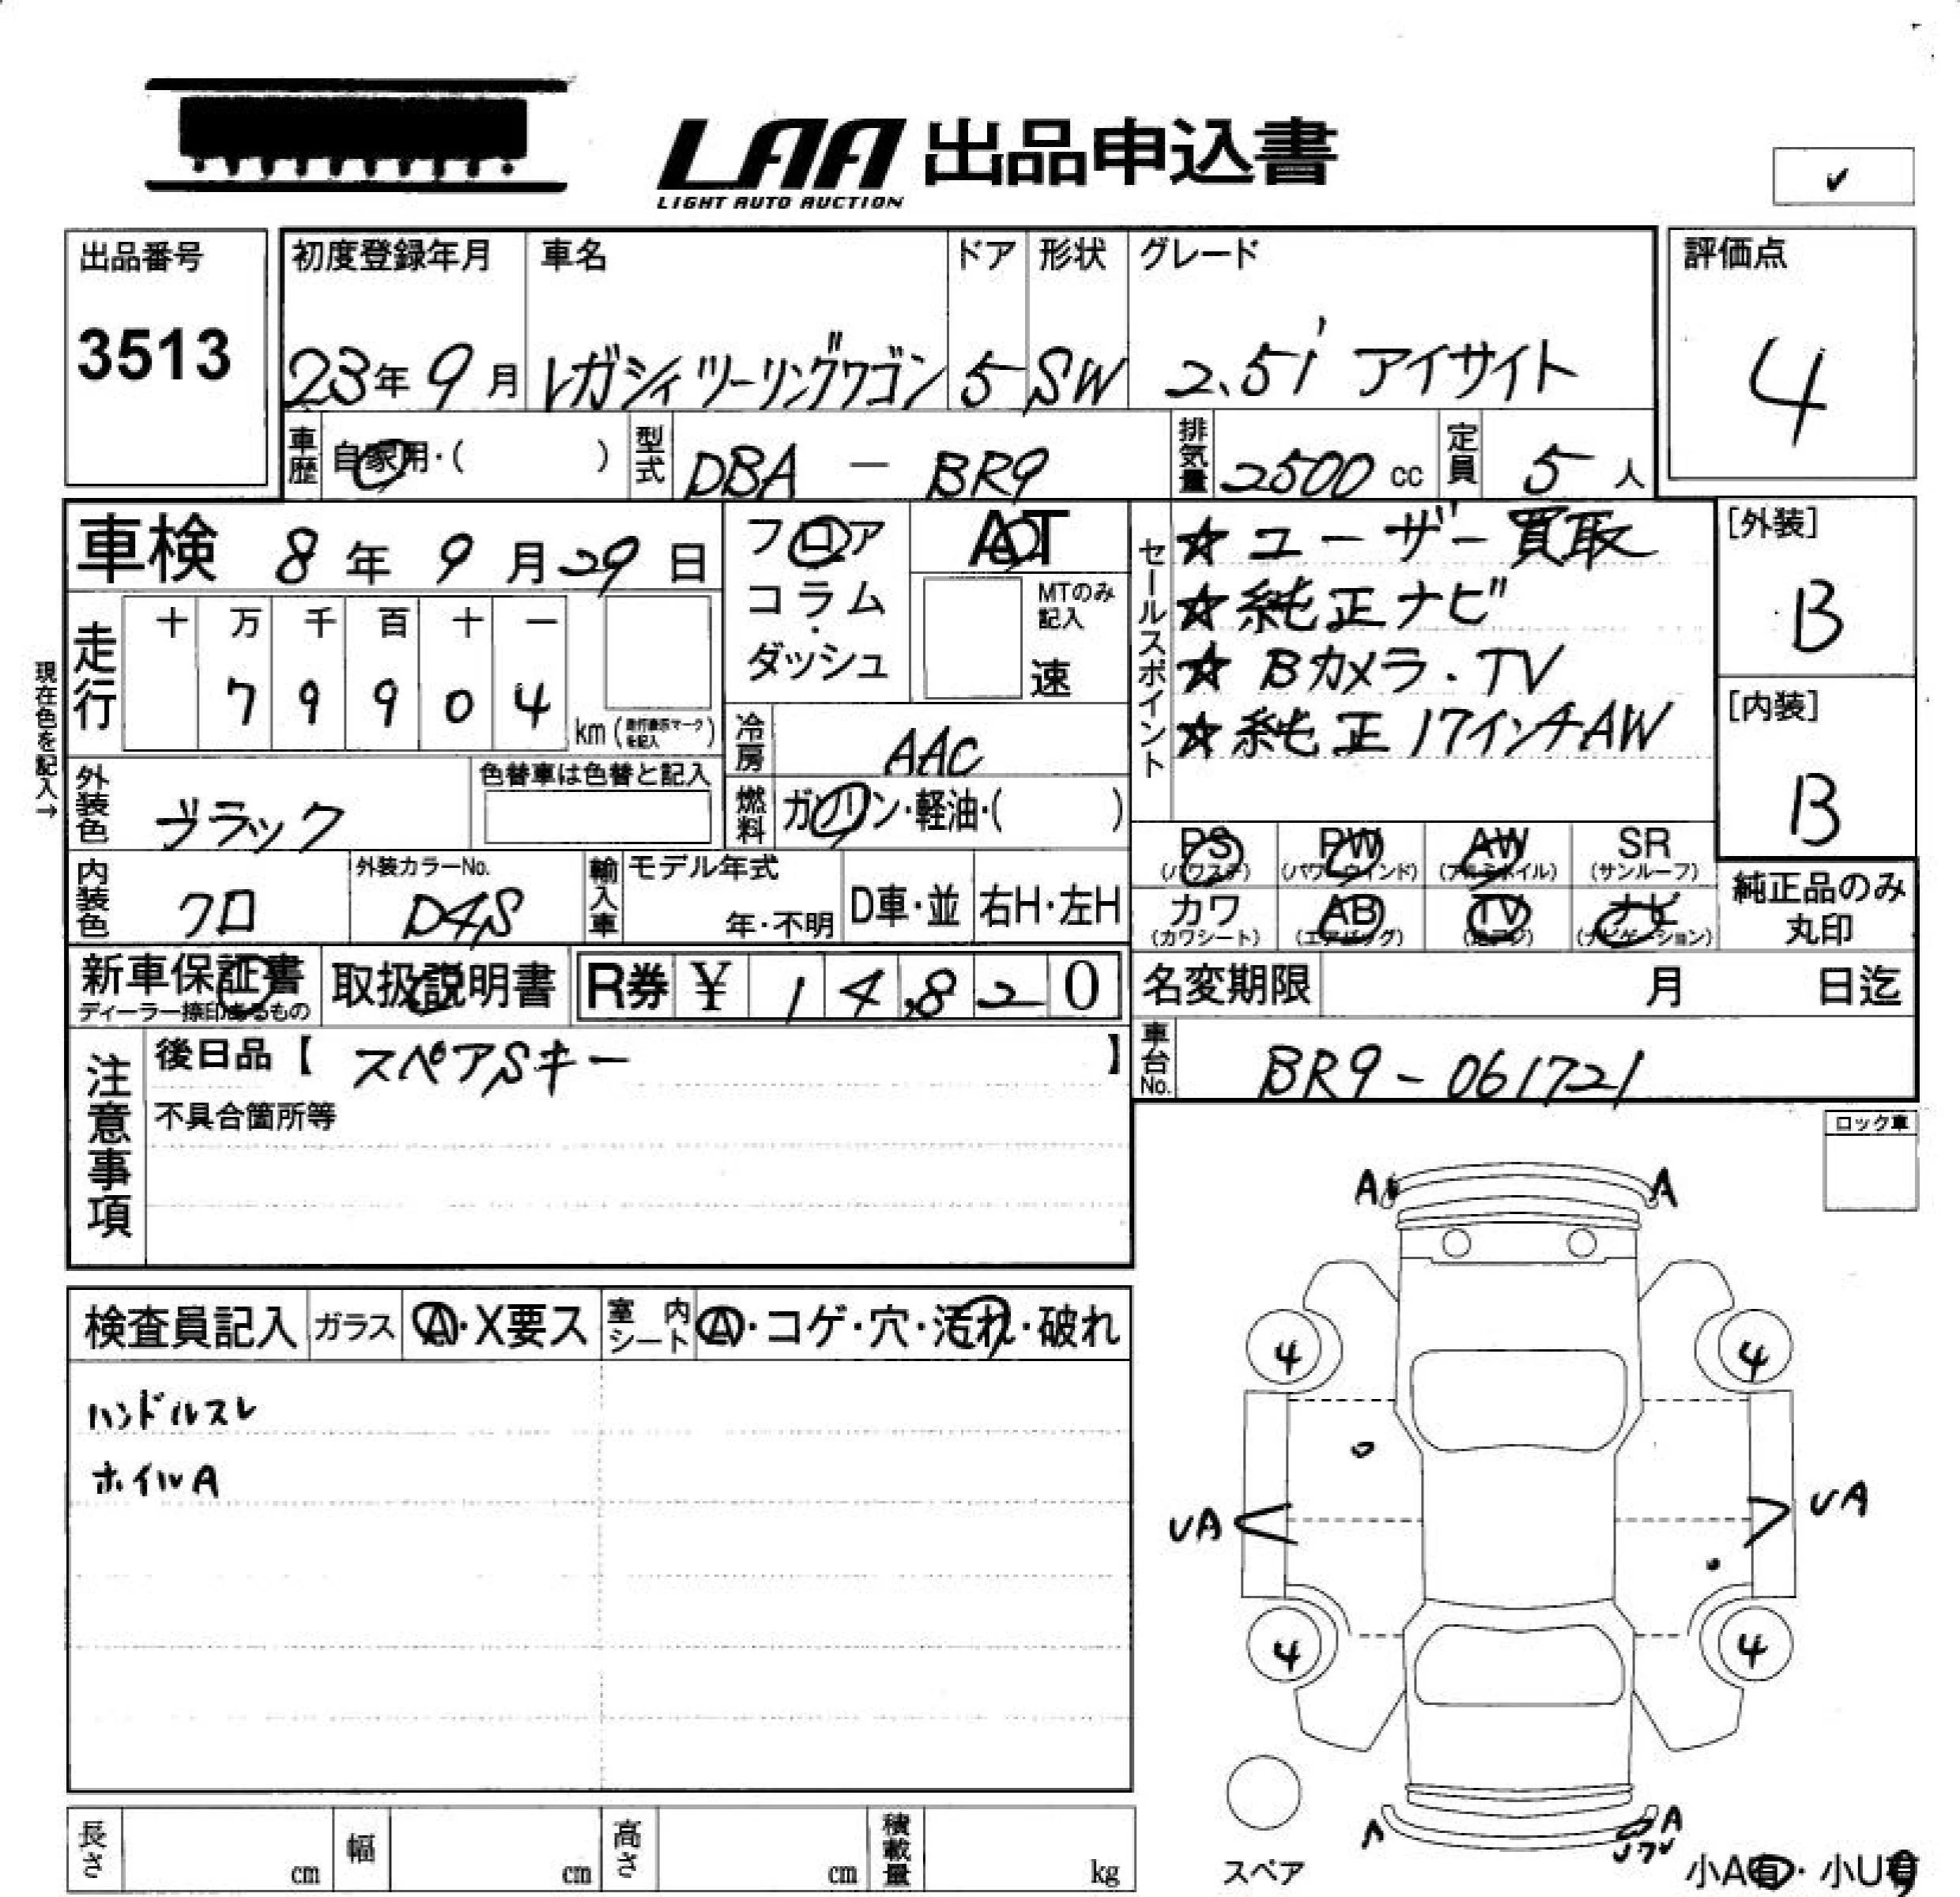 LAA 出品申込書
LIGHT AUTO AUCTION
✓
出品番号
3513
初度登録年月
23年9月
車名
レガシィツーリングワゴン
ドア
5
形状
SW
グレード
2.5i アイサイト
評価点
4
車歴 自家用・( )
型式 DBA － BR9
排気量 2500 cc
定員 5 人
車検 8年9月29日
フロア
コラム
・
ダッシュ
AT
MTのみ
記入
速
セールスポイント
☆ユーザー買取
☆純正ナビ
☆Bカメラ・TV
☆純正17インチAW
[外装]
B
[内装]
B
現在色を記入→
走行
十 万 千 百 十 一
7 9 9 0 4
km (走行表示マークを記入)
冷房 AAC
燃料 ガソリン・軽油・( )
外装色 ブラック
色替車は色替と記入
内装色 クロ
外装カラーNo.
D4S
輸入車
モデル年式
年・不明
D車・並
右H・左H
PS (パワステ)
PW (パワーウインド)
AW (アルミホイル)
SR (サンルーフ)
カワ (カワシート)
AB (エアバッグ)
TV (地デジ)
ナビ (ナビゲーション)
純正品のみ
丸印
新車保証書
ディーラー捺印あるもの
取扱説明書
R券 ¥ 14,820
名変期限 月 日迄
車台No. BR9-061721
注意事項
後日品【 スペアSキー 】
不具合箇所等
ロック車
検査員記入
ガラス A・X要ス
室内シート A・コゲ・穴・汚れ・破れ
ハンドルスレ
ホイルA
A A
4 4
UA UA
4 4
A A
スペア
小A有・小U有
長さ cm
幅 cm
高さ cm
積載量 kg